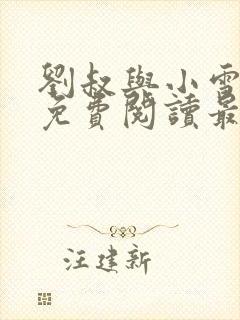 劉叔與小雪
免費閱讀最
汪建新